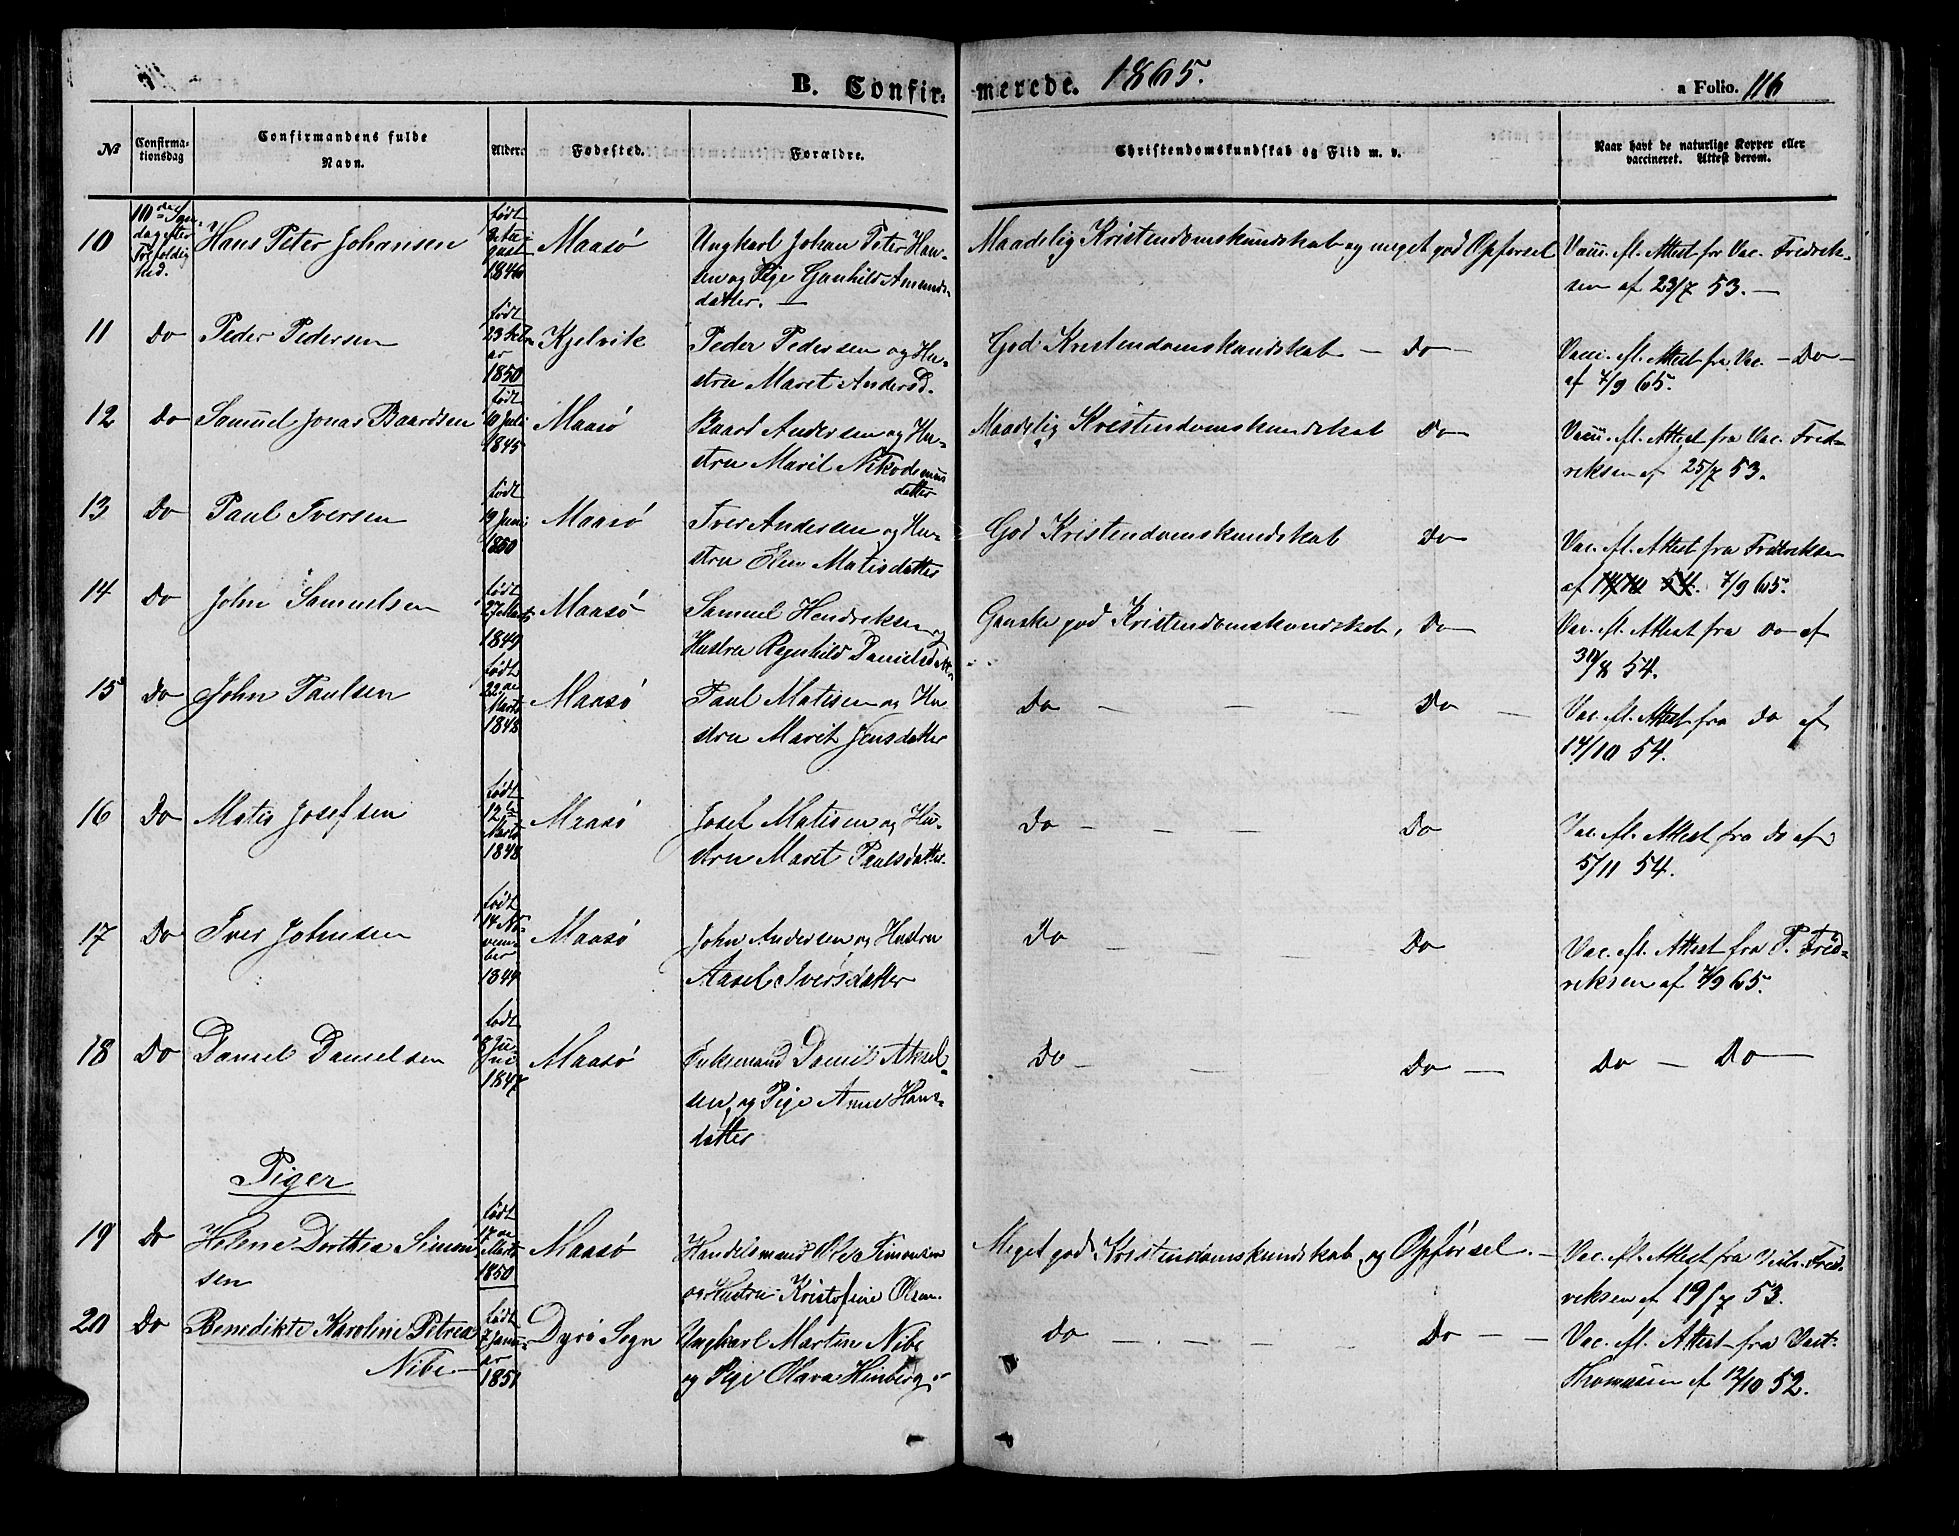 B. Confirmerede. 1865.
a Folio. 116
No
Confirmationsdag
Confirmandens fulde Navn.
Alder.
Fødested.
Forældre.
Christendomskundskab og Flid m. v.
Naar havt de naturlige Kopper eller vaccineret. Attest derom.
10 10de Søndag efter Trefoldighed. Hans Peter Johansen født 1846 Maasø Ungkarl Johan Peter Hansen og Pige Gunhild Amunds datter. — Maadelig Kristendomskundskab og meget god Opførsel Vacc. fl. Attest fr Vac. Fredriksen af 23/7 53. —
11 Do Peder Pedersen født 23 Febru ar 1850 Kjelvik Peder Pedersen og Hustru Marit Andersd. God Kristendomskundskab — Do — Vacc. fl. Attest fra Vac. — Do — af 7/9 65.
12 Do Samuel Jonas Baardsen født 10 Juli 1845 Maasø Baard Andersen og Hustru Marit Nikodemus datter Maadelig Kristendomskundskab Do — Vacc. fl. Attest fra Vac. Fredreksen af 25/7 53.
13 Do Paul Iversen født 19 Juni 1850 Maasø Iver Andersen og Hustru Elen Matisdatter God Kristendomskundskab Do Vac. fl. Attest fra Fredreksen af 7/9 65.
14 Do John Samuelsen født 27 Marts 1849 Maasø Samuel Hendreksen og Hustru Ragnhild Danielsdatter Ganske god Kristendomskundskab, Do — Vac. fl. Attest fra Do af 30/8 54.
15 Do John Paulsen født 22de Marts 1848 Maasø Paul Matisen og Hustru Marit Jensdatter Do — — — Do — Vac. fl. Attest fra do af 14/10 54.
16 Do Matis Josefsen født 12te Marts 1848 Maasø Josef Matisen og Hustru Marit Paulsdatter. Do — — — Do Vac. fl. Attest fra do af 5/11 54.
17 Do Iver Johnsen født 14 November 1849 Maasø John Andersen og Hustru Aasel Iversdatter Do — — — Do Vac. fl. Attest fra P. Fredreksen af 7/9 65.
18 Do Daniel Danielsen født 8 Juni 1847 Maasø Enkemand Daniel Aksel sen og Pige Anne Hans datter Do — — — Do — Do — Do —
Piger
19 Do Helene Dorthea Simonsen født 17de Marts 1850 Maasø Handelsmand Ole Simonsen og Hustru Kristofine Olsen. Meget god Kristendomskundskab og Opførsel. — Vac. fl. Attest fra Fredreksen af 19/7 53.
20 Do Benedikte Karoline Petrea Nibe født 7 Janu ar 1851 Dyrø Sogn Ungkarl Martin Nibe og Pige Olava Hinberg. Do — — — Do — — Vac. fl. Attest fra Thomassen af 12/10 52.